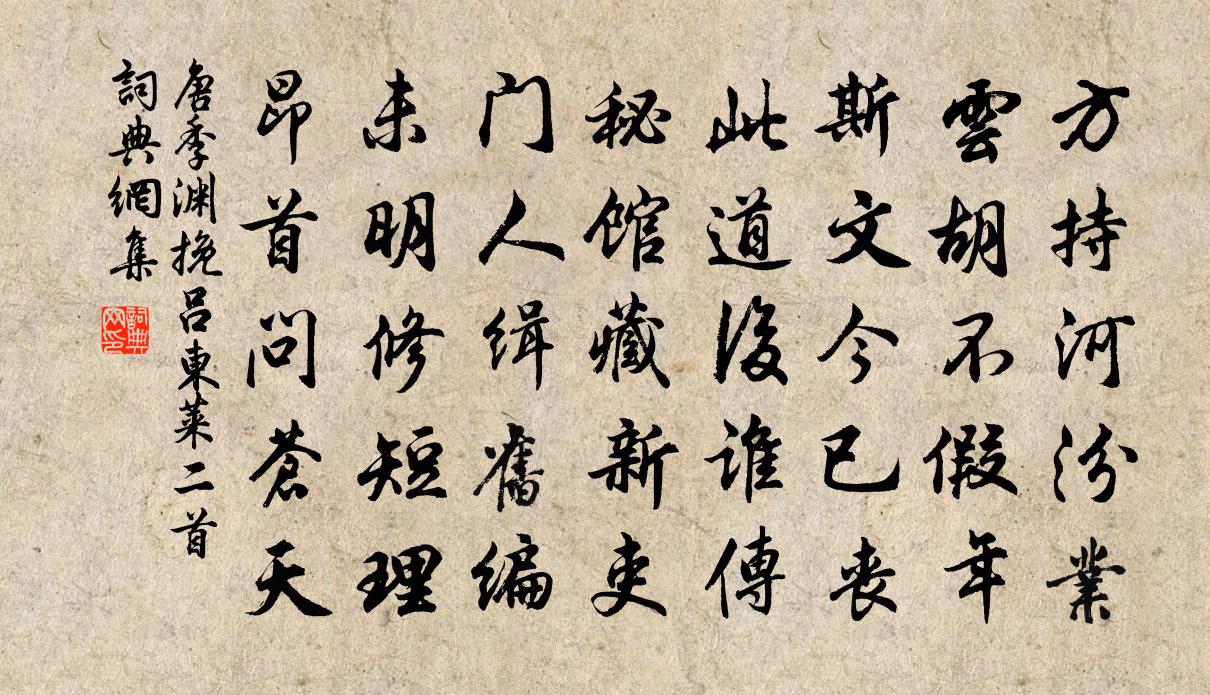 方持河汾業
雲胡不假年
斯文今已丧
此道後誰傳
秘馆藏新吏
门人缉舊编
未明修短理
昂首问蒼天
唐季渊挽吕東萊二首
詞典網集
詞典
网印